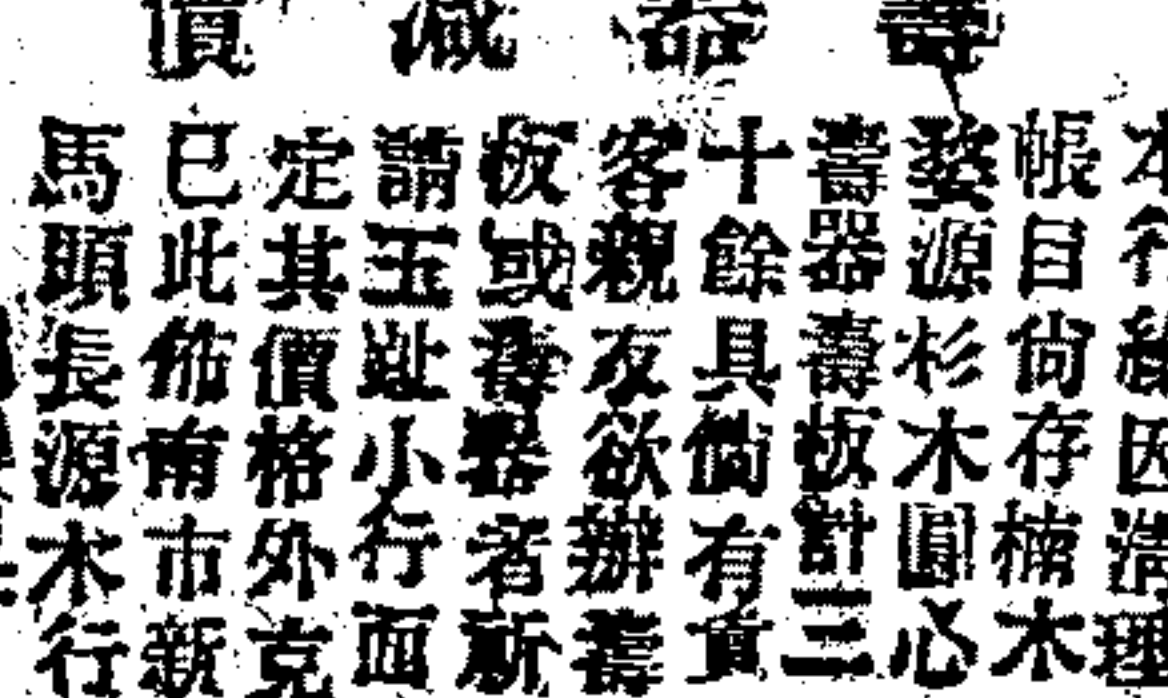 壽器減價
本行緣因清理
帳目尚存楠木
婺源杉木圓心
壽器壽板計三
十餘具倘有貴
客親友欲辦壽
板或壽器者祈
請玉趾小行面
定其價格外克
已此佈南市新
馬頭長源木行